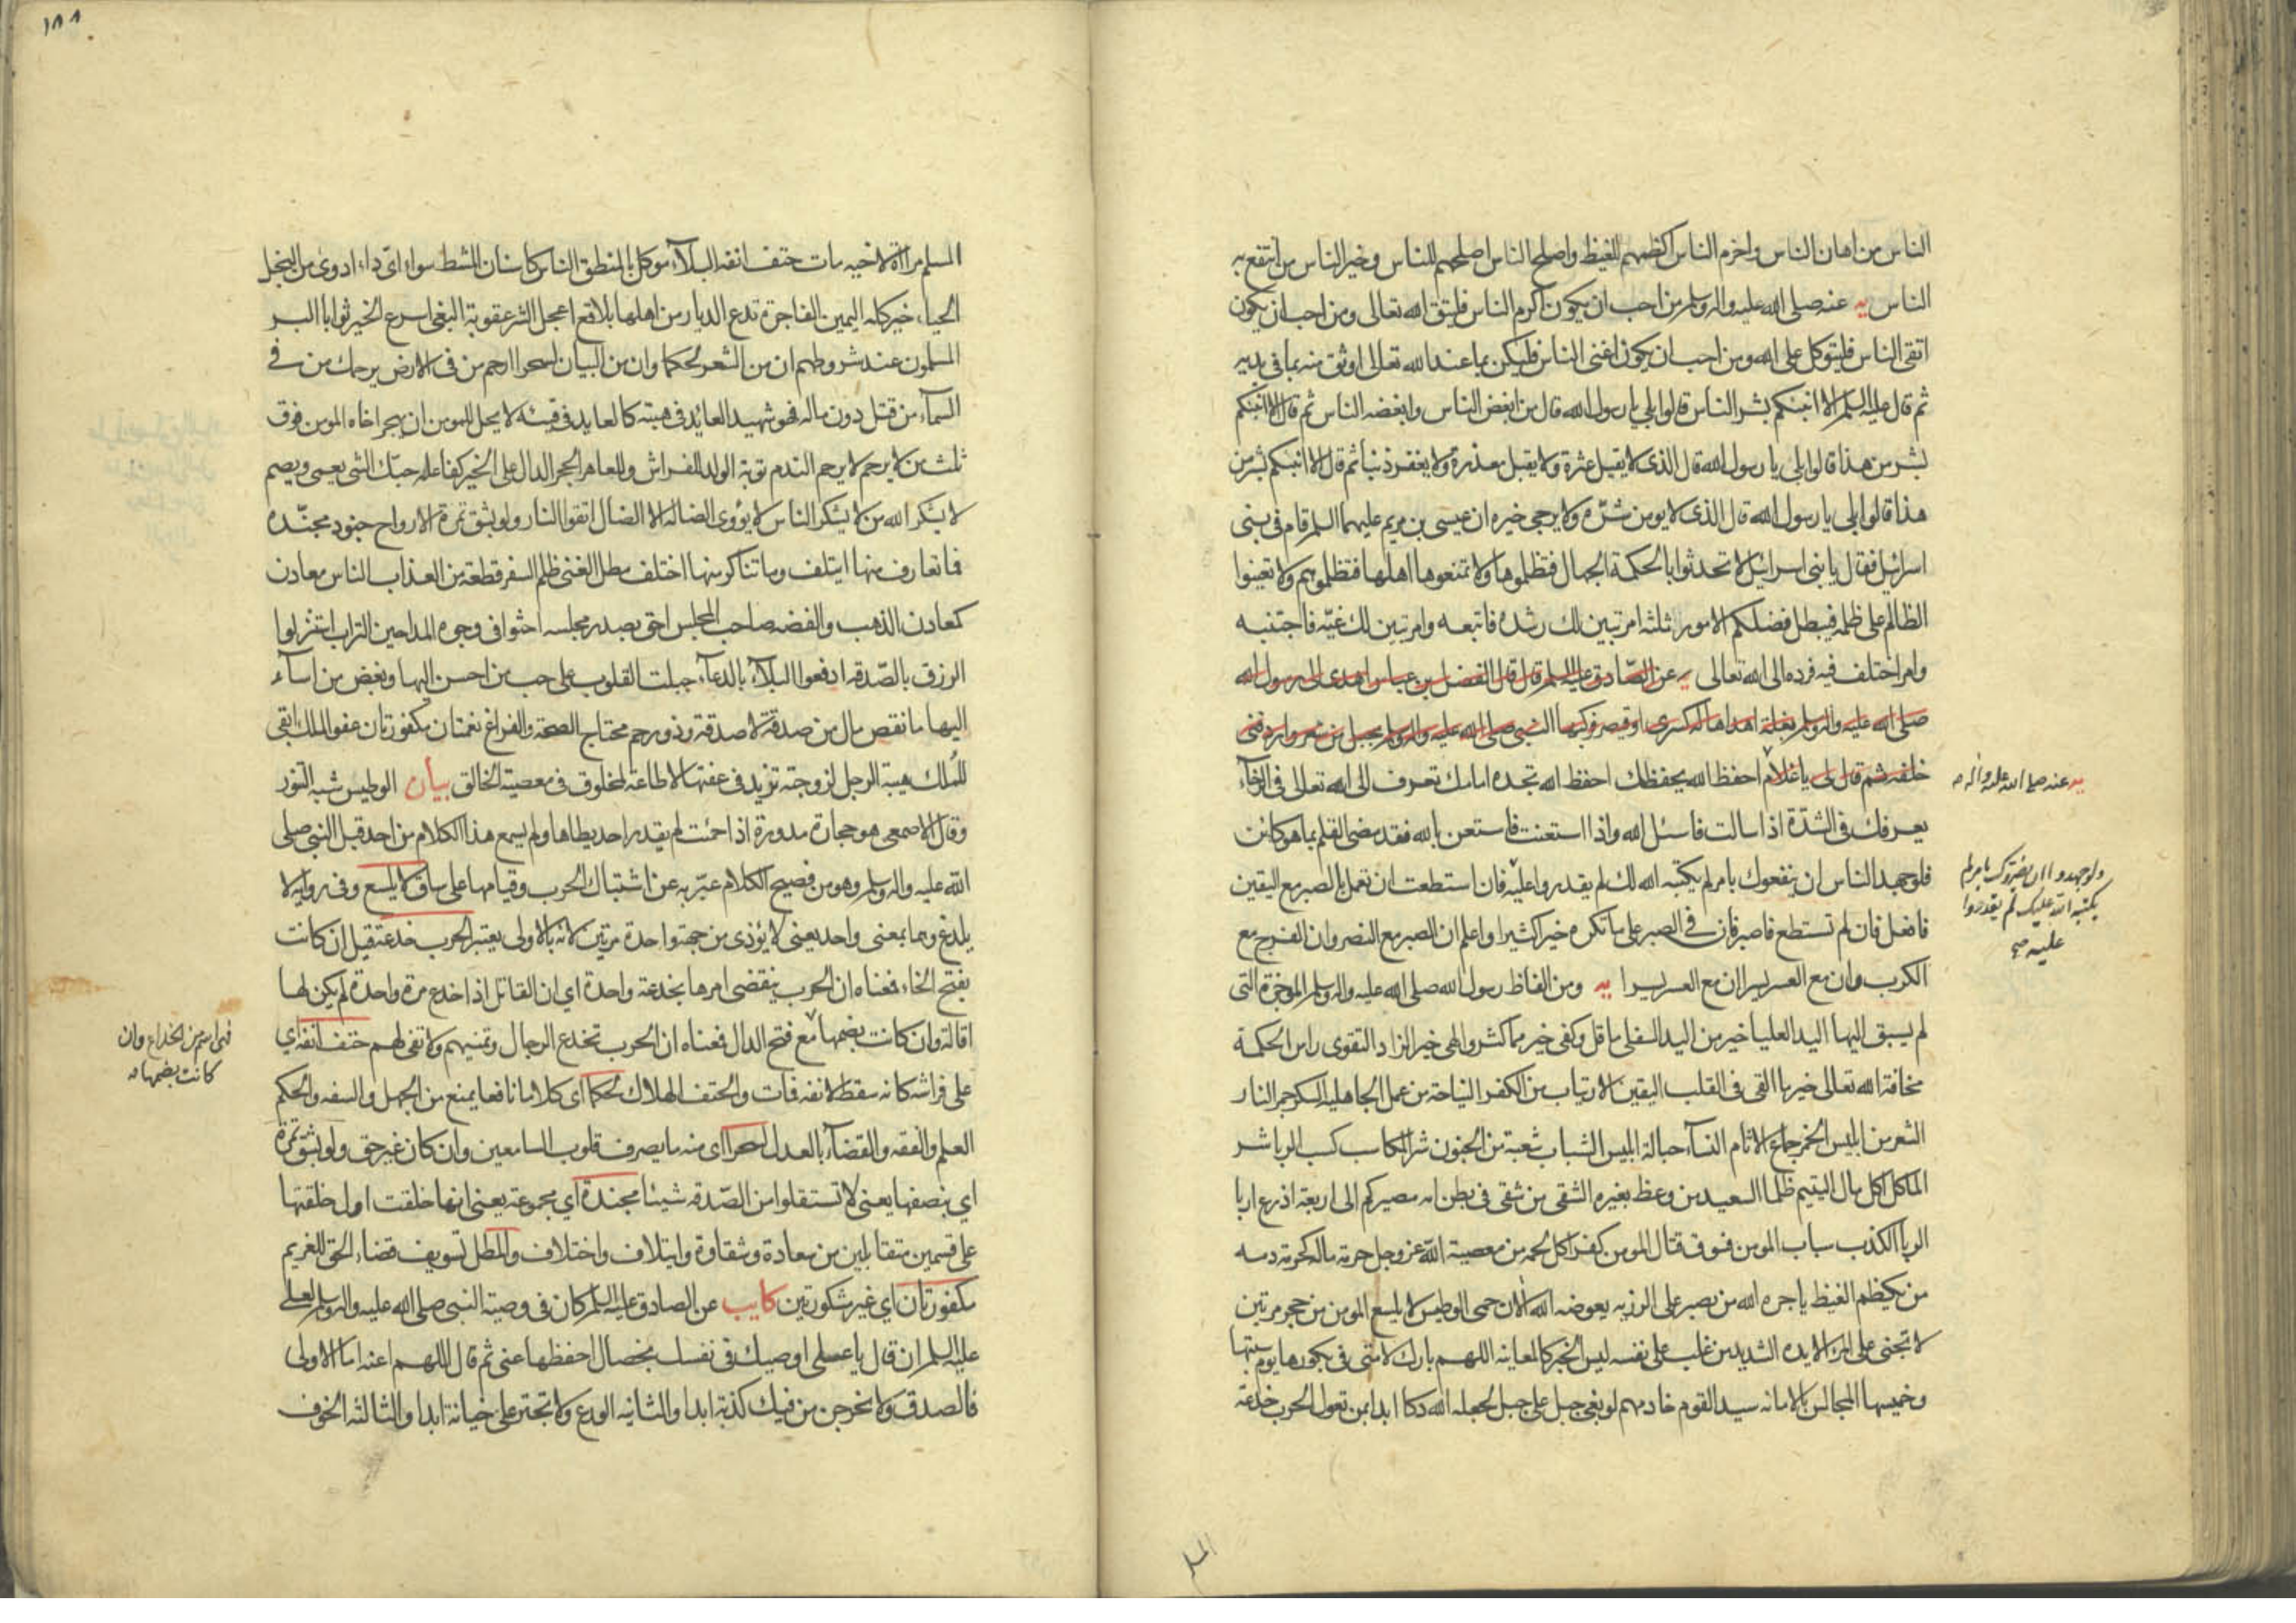 الناس من اهان الناس واحزم الناس اكظمهم للغيظ واصلح الناس اصلحهم للناس وخير الناس من انتفع به
الناس يه عنه صلى الله عليه واله وسلم من احب ان يكون اكرم الناس فليتق الله تعالى ومن احب ان يكون
اتقى الناس فليتوكل على الله ومن احب ان يكون اغنى الناس فليكن بما عند الله تعالى اوثق منه بما فى يديه
ثم قال عليه السلم الا انبئكم بشر الناس قالوا بلى يا رسول الله قال من ابغض الناس وابغضه الناس ثم قال الا انبئكم
بشر من هذا قالوا بلى يا رسول الله قال الذى لا يقيل عثرة ولا يقبل معذرة ولا يغفر ذنبا ثم قال الا انبئكم بشر من
هذا قالوا بلى يا رسول الله قال الذى لا يومن شرّه ولا يرجى خيره ان عيسى بن مريم عليهما السلم قام فى بنى
اسرائيل فقال يا بنى اسرائيل لا تحدثوا بالحكمة الجهال فتظلموها ولا تمنعوها اهلها فتظلموهم ولا تعينوا
الظالم على ظلمه فيبطل فضلكم الامور ثلثة امر تبين لك رشده فاتبعه وامر تبين لك غيّه فاجتنبه
وامر اختلف فيه فرده الى الله تعالى يه عن الصّادق عليه السلم قال قال الفضل بن عباس اهدى الى رسول الله
صلى الله عليه واله وسلم بغلة اهداها له كسرى او قيصر فركبها النبى صلى الله عليه واله وسلم بجل من شعر واردفنى
خلفه ثم قال لى يا غلام احفظ الله يحفظك احفظ الله تجده امامك تعرف الى الله تعالى فى الرخآء
يه عنه صلى الله عليه واله
يعرفك فى الشدّة اذا سالت فاسئل الله واذا استعنت فاستعن بالله فقد مضى القلم بما هو كائن
فلو جهد الناس ان ينفعوك بامر لم يكتبه الله لك لم يقدروا عليه فان استطعت ان تعمل بالصبر مع اليقين
ولو جهدوا ان يضروك بامر لم
يكتبه الله عليك لم يقدروا
عليه صح
فافعل فان لم تستطع فاصبر فان فى الصبر على ما تكره خيرا كثيرا واعلم ان الصبر مع النصر وان الفرج مع
الكرب وان مع العسر يسرا ان مع العسر يسرا يه ومن الفاظ رسول الله صلى الله عليه واله وسلم الموجزة التى
لم يسبق اليها اليد العليا خير من اليد السفلى ما قل وكفى خير مما كثر والهى خير الزاد التقوى راس الحكمة
مخافة الله تعالى خير ما القى فى القلب اليقين الارتياب من الكفر النياحة من عمل الجاهليه السكر جمر النار
الشعر من ابليس الخمر جماع الاثام النسآء حبالة ابليس الشباب شعبة من الجنون شر المكاسب كسب الربا شر
الماكل اكل مال اليتيم ظلما السعيد من وعظ بغيره الشقى من شقى فى بطن امه مصيركم الى اربعة اذرع اربا
الربا الكذب سباب المومن فسوق قتال المومن كفر اكل لحمه من معصية الله عز وجل حرمة ماله كحرمة دمه
من يكظم الغيظ ياجره الله من يصبر على الرزيه يعوضه الله الان حمى الوطيس لا يلسع المومن من جحر مرتين
لا تجنى على المرء الا يده الشديد من غلب على نفسه ليس الخبر كالمعاينه اللهم بارك لامتى فى بكورها يوم سبتها
وخميسها المجالس بالامانه سيد القوم خادمهم لو بغى جبل على جبل لجعله الله دكا ابدا بمن تعول الحرب خدعة
المسلم

١٨٨
المسلم مراة لاخيه مات حتف انفه البلآء موكل بالمنطق الناس كاسنان المشط سواء اى داء ادوى من البخل
الحياء خير كله اليمين الفاجرة تدع الديار من اهلها بلاقع اعجل الشر عقوبة البغى اسرع الخير ثوابا البر
المسلمون عند شروطهم ان من الشعر لحكما وان من البيان لسحرا ارحم من فى الارض يرحمك من فى
السمآء من قتل دون ماله فهو شهيد العائد فى هبته كالعايد فى قيئه لا يحل للمومن ان يهجر اخاه المومن فوق
ثلث من لا يرحم لا يرحم الندم توبة الولد للفراش وللعاهر الحجر الدال على الخير كفاعله حبّك الشى يعمى ويصم
لا يشكر الله من لا يشكر الناس لا يؤوى الضالة الا الضال اتقوا النار ولو بشق تمرة الارواح جنود مجنّده
فما تعارف منها ايتلف وما تناكر منها اختلف مطل الغنى ظلم السفر قطعة من العذاب الناس معادن
كمعادن الذهب والفضه صاحب المجلس احق بصدر مجلسه احثوا فى وجوه المداحين التراب استنزلوا
الرزق بالصّدقه ادفعوا البلآء بالدعآء جبلت القلوب على حب من احسن اليها وبغض من اسآء
اليها ما نقص مال من صدقة لا صدقة وذو رحم محتاج الصحة والفراغ نعمتان مكفورتان عفو الملك ابقى
للملك هيبة الرجل لزوجته تزيد فى عفتها لا طاعة لمخلوق فى معصية الخالق بيان الوطيس شبه التنور
وقال الاصمعى هو حجارة مدورة اذا حميت لم يقدر احد يطاها ولم يسمع هذا الكلام من احد قبل النبى صلى
الله عليه واله وسلم وهو من فصيح الكلام عبّر به عن اشتباك الحرب وقيامها على ساق لا يلسع وفى رواية لا
يلدغ وهما بمعنى واحد يعنى لا يؤذى من جهة واحدة مرتين لانه بالاولى يعتبر الحرب خدعة قيل ان كانت
بفتح الخاء فمعناه ان الحرب ينقضى امرها بخدعة واحدة اى ان المقاتل اذا خدع مرة واحدة لم يكن لها
اقالة وان كانت بضمها مع فتح الدال فمعناه ان الحرب تخدع الرجال وتمنيهم ولا تفى لهم حتف انفه اى
فهى اسم من الخداع وان
كانت بضمها
على فراشه كانه سقط لانفه فمات والحتف الهلاك لحكما اى كلاما نافعا يمنع من الجهل والسفه والحكم
العلم والفقه والقضآء بالعدل لسحرا اى منه ما يصرف قلوب السامعين وان كان غير حق ولو بشق تمرة
اى بنصفها يعنى لا تستقلوا من الصّدقه شيئا مجندة اى مجموعة يعنى انها خلقت اول خلقتها
على قسمين متقابلين من سعادة وشقاوة وايتلاف واختلاف والمطل تسويف قضاء الحق للغريم
مكفورتان اى غير مشكورتين كا يب عن الصادق عليه السلم كان فى وصية النبى صلى الله عليه واله وسلم لعلى
عليه السلم ان قال يا على اوصيك فى نفسك بخصال احفظها عنى ثم قال اللهم اعنه اما الاولى
فالصدق ولا تخرجن من فيك كذبة ابدا والثانيه الورع ولا تجترء على خيانة ابدا والثالثه الخوف